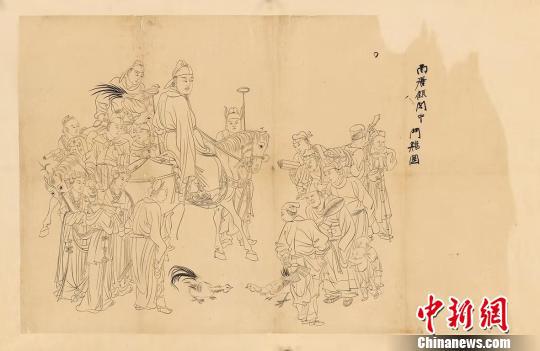 南唐顧閎中鬥鷄圖
中新網
Chinanews.com